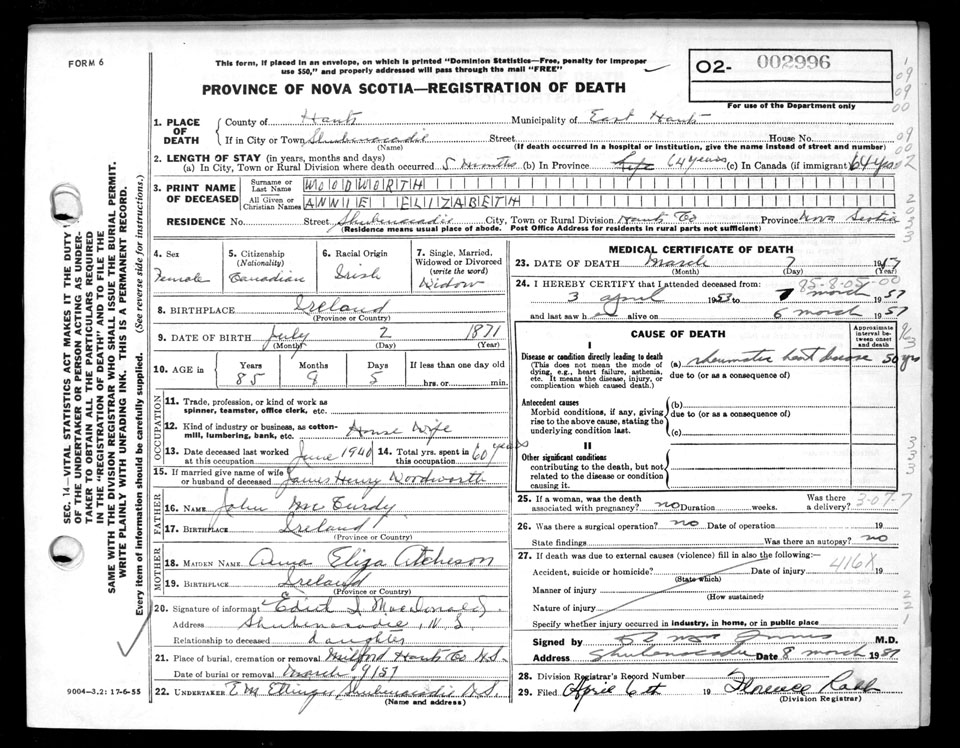 FORM 6
This form, if placed in an envelope, on which is printed "Dominion Statistics—Free, penalty for improper
use $50," and properly addressed will pass through the mail "FREE"
O2- 002996
For use of the Department only
PROVINCE OF NOVA SCOTIA—REGISTRATION OF DEATH
1. PLACE OF DEATH
County of Hants Municipality of East Hants
If in City or Town Shubenacadie Street House No.
(Name) (If death occurred in a hospital or institution, give the name instead of street and number)
2. LENGTH OF STAY (in years, months and days)
(a) In City, Town or Rural Division where death occurred 5 Months (b) In Province Life 64 years (c) In Canada (if immigrant) 64 yrs
3. PRINT NAME OF DECEASED
Surname or Last Name WOODWORTH
All Given or Christian Names ANNIE ELIZABETH
RESIDENCE No. Street Shubenacadie City, Town or Rural Division Hants Co Province Nova Scotia
(Residence means usual place of abode. Post Office Address for residents in rural parts not sufficient)
4. Sex
Female
5. Citizenship
(Nationality)
Canadian
6. Racial Origin
Irish
7. Single, Married,
Widowed or Divorced
(write the word)
Widow
8. BIRTHPLACE Ireland
(Province or Country)
9. DATE OF BIRTH July 2 1871
(Month) (Day) (Year)
10. AGE in Years Months Days If less than one day old
85 8 5 hrs. or min.
OCCUPATION
11. Trade, profession, or kind of work as
spinner, teamster, office clerk, etc.
12. Kind of industry or business, as cotton-
mill, lumbering, bank, etc. House Wife
13. Date deceased last worked
at this occupation June 1940
14. Total yrs. spent in
this occupation 60 years
15. If married give name of wife
or husband of deceased James Henry Woodworth
FATHER
16. NAME John McCurdy
17. BIRTHPLACE Ireland
(Province or Country)
MOTHER
18. MAIDEN NAME Anna Eliza Atcheson
19. BIRTHPLACE Ireland
(Province or Country)
20. Signature of informant Edith I MacDonald
Address Shubenacadie, N S
Relationship to deceased daughter
21. Place of burial, cremation or removal Milford Hants Co N.S.
Date of burial or removal March 9/57
22. UNDERTAKER E M Ettinger, Shubenacadie N.S.
(Name and address)
MEDICAL CERTIFICATE OF DEATH
23. DATE OF DEATH March 7 1957
(Month) (Day) (Year)
24. I HEREBY CERTIFY that I attended deceased from:
95-8-05-00
3 april 1953 to 7 march 1957
and last saw h alive on 6 march 1957
CAUSE OF DEATH
Approximate
interval be-
tween onset
and death
I
Disease or condition directly leading to death
(This does not mean the mode of
dying, e.g., heart failure, asthenia,
etc. It means the disease, injury, or
complication which caused death.)
(a) rheumatic heart disease 50 yrs
due to (or as a consequence of)
Antecedent causes
Morbid conditions, if any, giving
rise to the above cause, stating the
underlying condition last.
(b)
due to (or as a consequence of)
(c)
II
Other significant conditions
contributing to the death, but not
related to the disease or condition
causing it.
25. If a woman, was the death
associated with pregnancy? no Duration weeks. Was there
a delivery? 3-07-7
26. Was there a surgical operation? no Date of operation 19
State findings Was there an autopsy? no
27. If death was due to external causes (violence) fill in also the following:—
Accident, suicide or homicide? Date of injury 416X 19
(State which)
Manner of injury
(How sustained)
Nature of injury
Specify whether injury occurred in industry, in home, or in public place
Signed by M.D.
Address Shubenacadie Date 8 march 1957
28. Division Registrar's Record Number
29. Filed April 6th 19 Florence
(Division Registrar)
SEC. 14—VITAL STATISTICS ACT MAKES IT THE DUTY
OF THE UNDERTAKER OR PERSON ACTING AS UNDER-
TAKER TO OBTAIN ALL THE PARTICULARS REQUIRED
IN THE "REGISTRATION OF DEATH" AND TO FILE THE
SAME WITH THE DIVISION REGISTRAR WHO SHALL ISSUE THE BURIAL PERMIT.
WRITE PLAINLY WITH UNFADING INK. THIS IS A PERMANENT RECORD.
Every item of information should be carefully supplied. (See reverse side for instructions.)
9004—3.2: 17-6-55